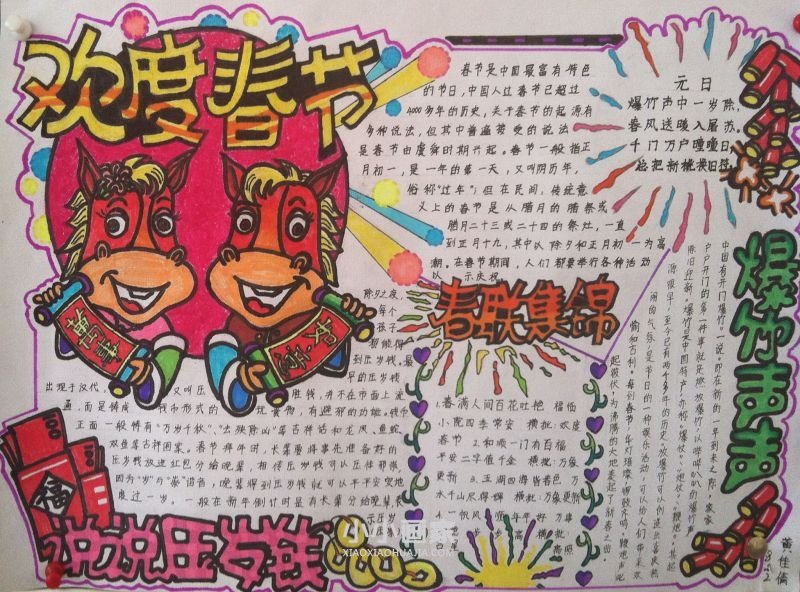 欢度春节
春节是中国最富有特色
的节日,中国人过春节已超过
4000多年的历史,关于春节的起源有
多种说法,但其中普遍接受的说法
是春节由虞舜时期兴起。春节一般指正
月初一,是一年的第一天,又叫阴历年,
俗称“过年”;但在民间,传统意
义上的春节是从腊月的腊祭或
腊月二十三或二十四的祭灶,一直
到正月十九,其中以除夕和正月初一为高
潮,在春节期间,人们都要举行各种活动
以示庆祝
元日
爆竹声中一岁除,
春风送暖入屠苏。
千门万户曈曈日,
总把新桃换旧符
爆竹声声
中国有开门爆竹”一说。即在新的一年到来之际,家家
户户开门的第一件事就是燃放爆竹,以哔哔叭叭的爆竹声
除旧迎新。爆竹是中国特产,亦称“爆仗”、“炮仗”、“鞭炮”。其起
源很早,至今已有两千多年的历史。放爆竹可以创造出喜庆热
闹的气氛,是节日的一种娱乐活动,可以给人们带来欢
愉和吉利。
春联集锦
1.春满人间百花吐艳 福临
小院四季常安 横批:欢度
春节 2.和顺一门有百福
平安二字值千金 横批:万象
更新 3.五湖四海皆春色 万
水千山尽得辉 横批:万象更新
4.一帆风顺年年好 万事
除夕之夜,
每个
孩子
都能得
到压岁钱。最
早的压岁钱
出现于汉代, 又叫压 胜钱,并不在市面上流
通,而是铸成 钱币形式的 玩赏物,有避邪的功能。钱币
正面一般铸有“万岁千秋”、“去殃除凶”等吉祥话和龙凤、龟蛇、
双鱼等吉祥图案。春节拜年时,长辈要将事先准备好的
压岁钱放进红包分给晚辈,相传压岁钱可以压住邪祟,
因为“岁”与“祟”谐音,晚辈得到压岁钱就可以平平安安地
度过一岁。一般在新年倒计时是有长辈分给晚辈,
福
说说压岁钱
小小画家
XIAOXIAOHUAJIA.COM
黄佳倩